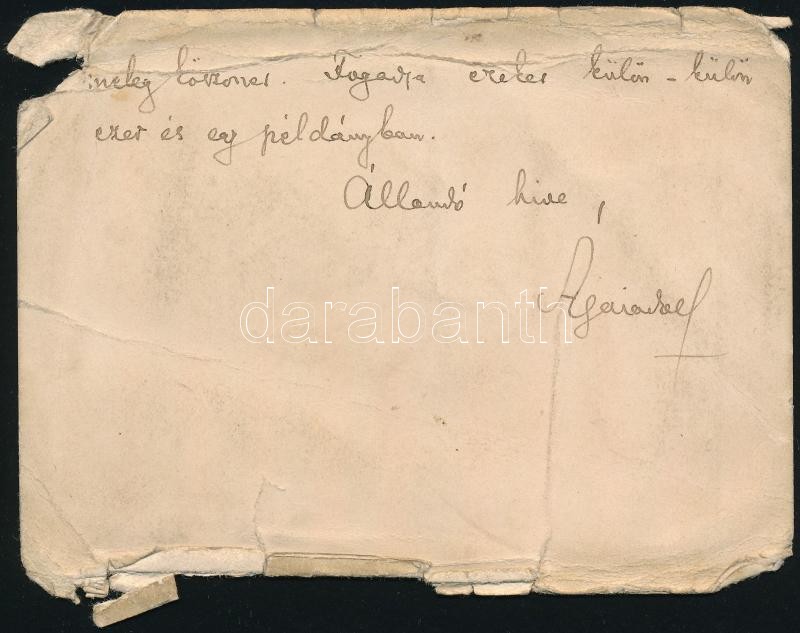 meleg köszönet. Fogadja ezeket külön-külön
ezer és egy példányban.
Állandó hive,
darabanth